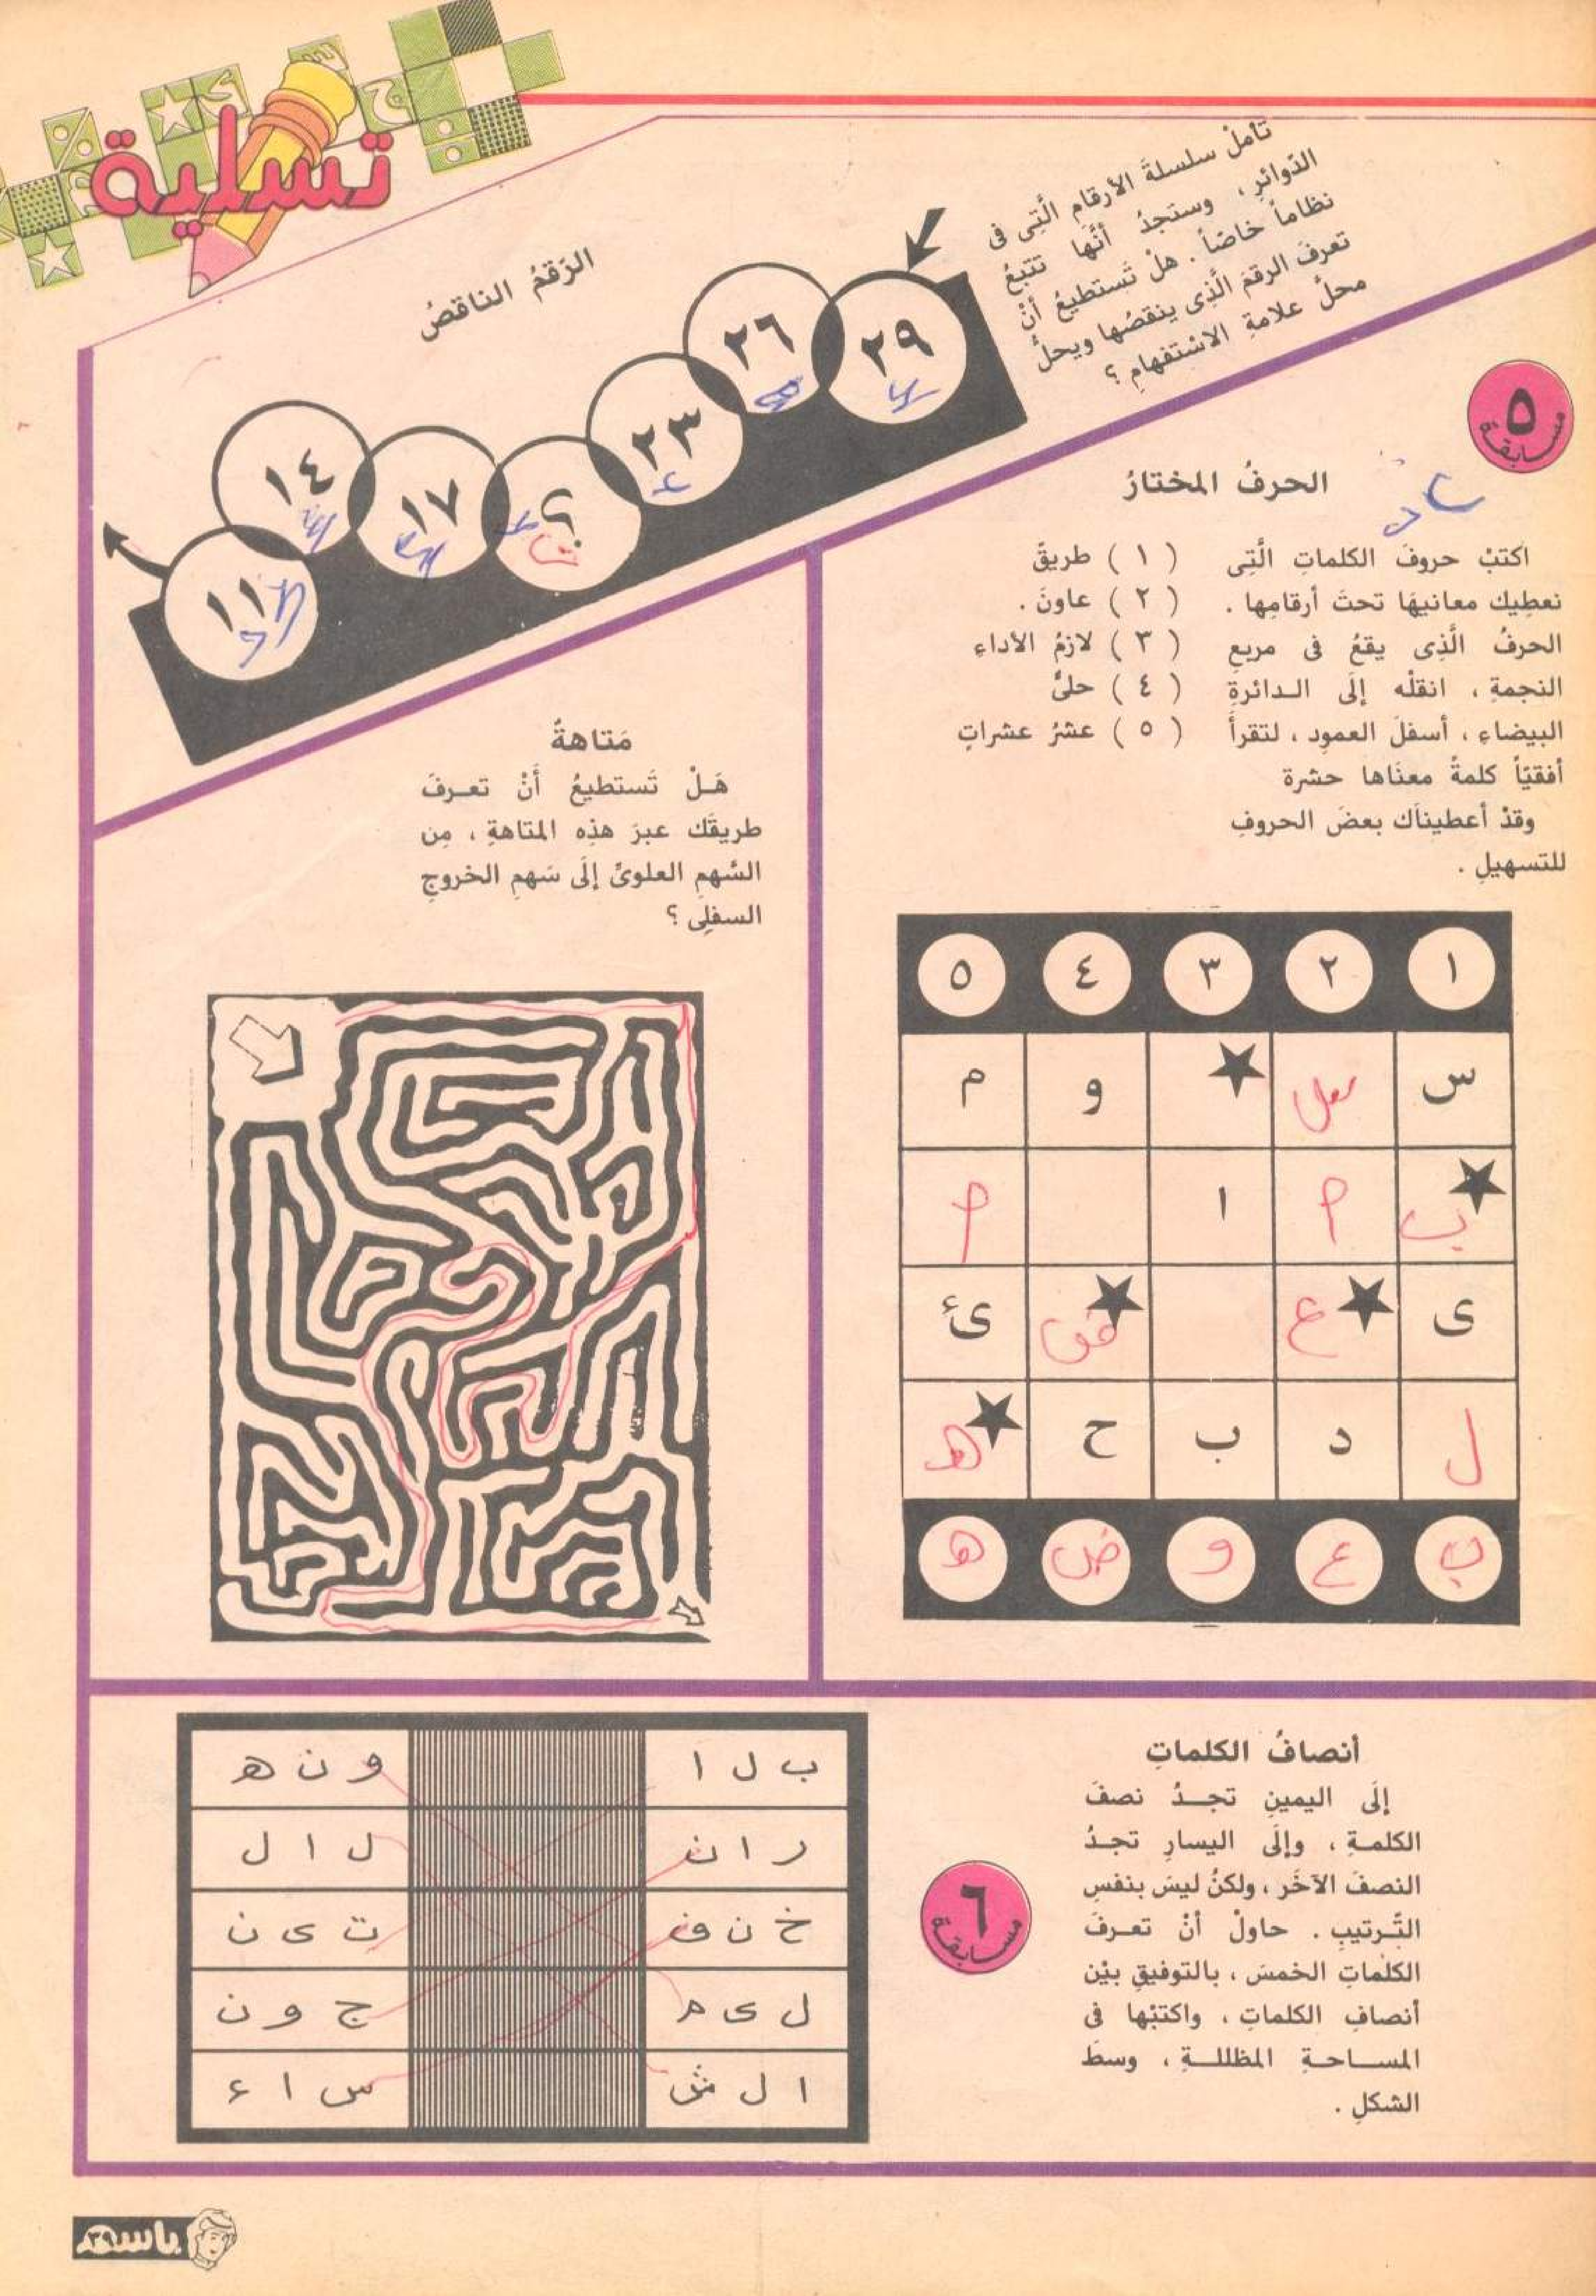 تسلية
تأملْ سلسلةَ الأرقامِ الَّتِى فى
الدّوائرِ، وستجدُ أنَّها تتبعُ
نظاماً خاصّاً. هلْ تَستطيعُ أنْ
تعرفَ الرقمَ الَّذِى ينقصُها ويحلُّ
محلَّ علامةِ الاسْتفهامِ ؟
الرّقمُ الناقصُ
٢٩
٢٦
٢٣
؟
١٧
١٤
١١
مسابقة ٥
الحرفُ المختارُ
اكتبْ حروفَ الكلماتِ الَّتِى
نعطِيك معانيهَا تحتَ أرقامِها .
الحرفُ الَّذِى يقعُ فى مربعِ
النجمةِ ، انقلْه إلَى الـدائرةِ
البيضاءِ ، أسفلَ العمودِ ، لتقرأَ
أفقيّاً كلمةً معنَاها حشرة
وقدْ أعطينَاك بعضَ الحروفِ
للتسهيلِ .
( ١ ) طريقٌ
( ٢ ) عاونَ .
( ٣ ) لازمُ الأداءِ
( ٤ ) حلىٌّ
( ٥ ) عشرُ عشراتٍ
١ ٢ ٣ ٤ ٥
س و م
ب م ا م
ى ع ض ئ
ل د ب ح هـ
ب ع و ض هـ
مَتاهةٌ
هَـلْ تَستطيعُ أَنْ تعـرفَ
طريقَك عبرَ هذِه المتاهةِ ، مِن
السَّهمِ العلوىِّ إلَى سَهمِ الخروجِ
السفلِى ؟
مسابقة ٦
أنصافُ الكلماتِ
إلَى اليمينِ تجـدُ نصفَ
الكلمـةِ ، وإلَى اليسارِ تجـدُ
النصفَ الآخَر ، ولكنْ ليسَ بنفسِ
التَّرتيبِ . حاولْ أنْ تعـرفَ
الكلماتِ الخمسَ ، بالتوفيقِ بيْن
أنصافِ الكلماتِ ، واكتبْها فى
المسـاحـةِ المظللـةِ ، وسطَ
الشكلِ .
ب ل ا و ن هـ
ر ا ن ل ا ل
خ ن ف ت ى ن
ل ى م ج و ن
ا ل ش س ا ء
باسم
٣٩